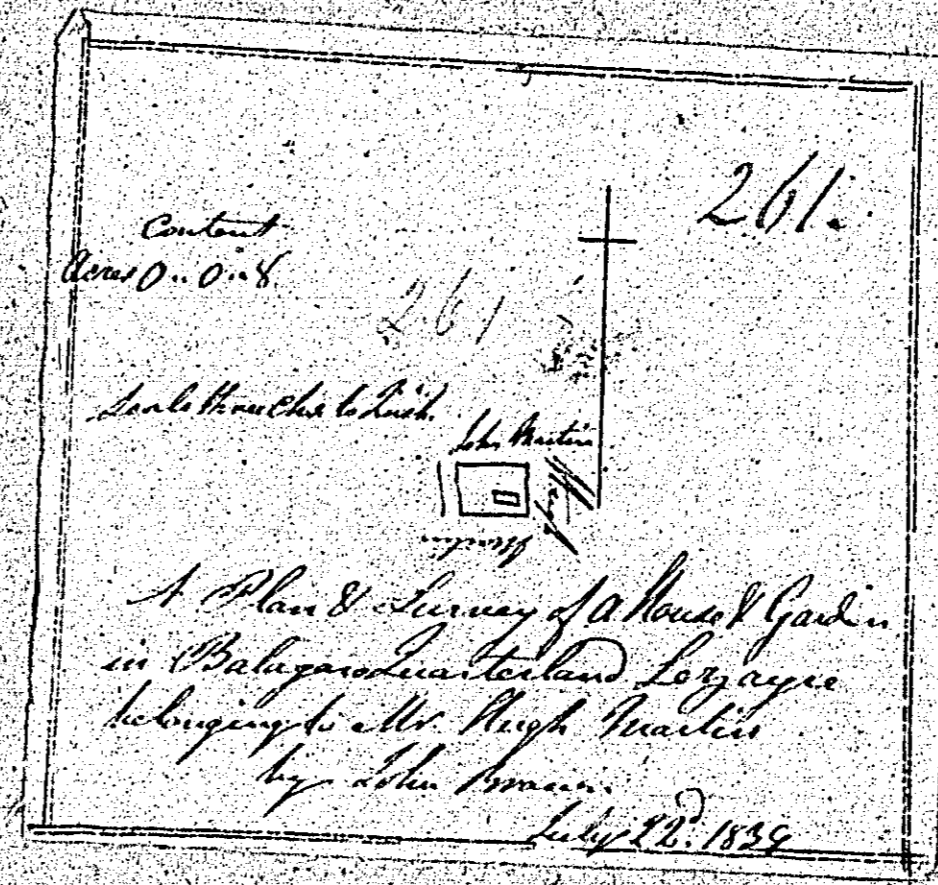 261.
Content
Acres 0..0..8
261
Scale three Chs to Inch.
John Martin
A Plan & Survey of a House & Garden
in Quarterland Lezayre
belonging to Mr. Hugh Martin
by John Brown.
July 22d. 1839